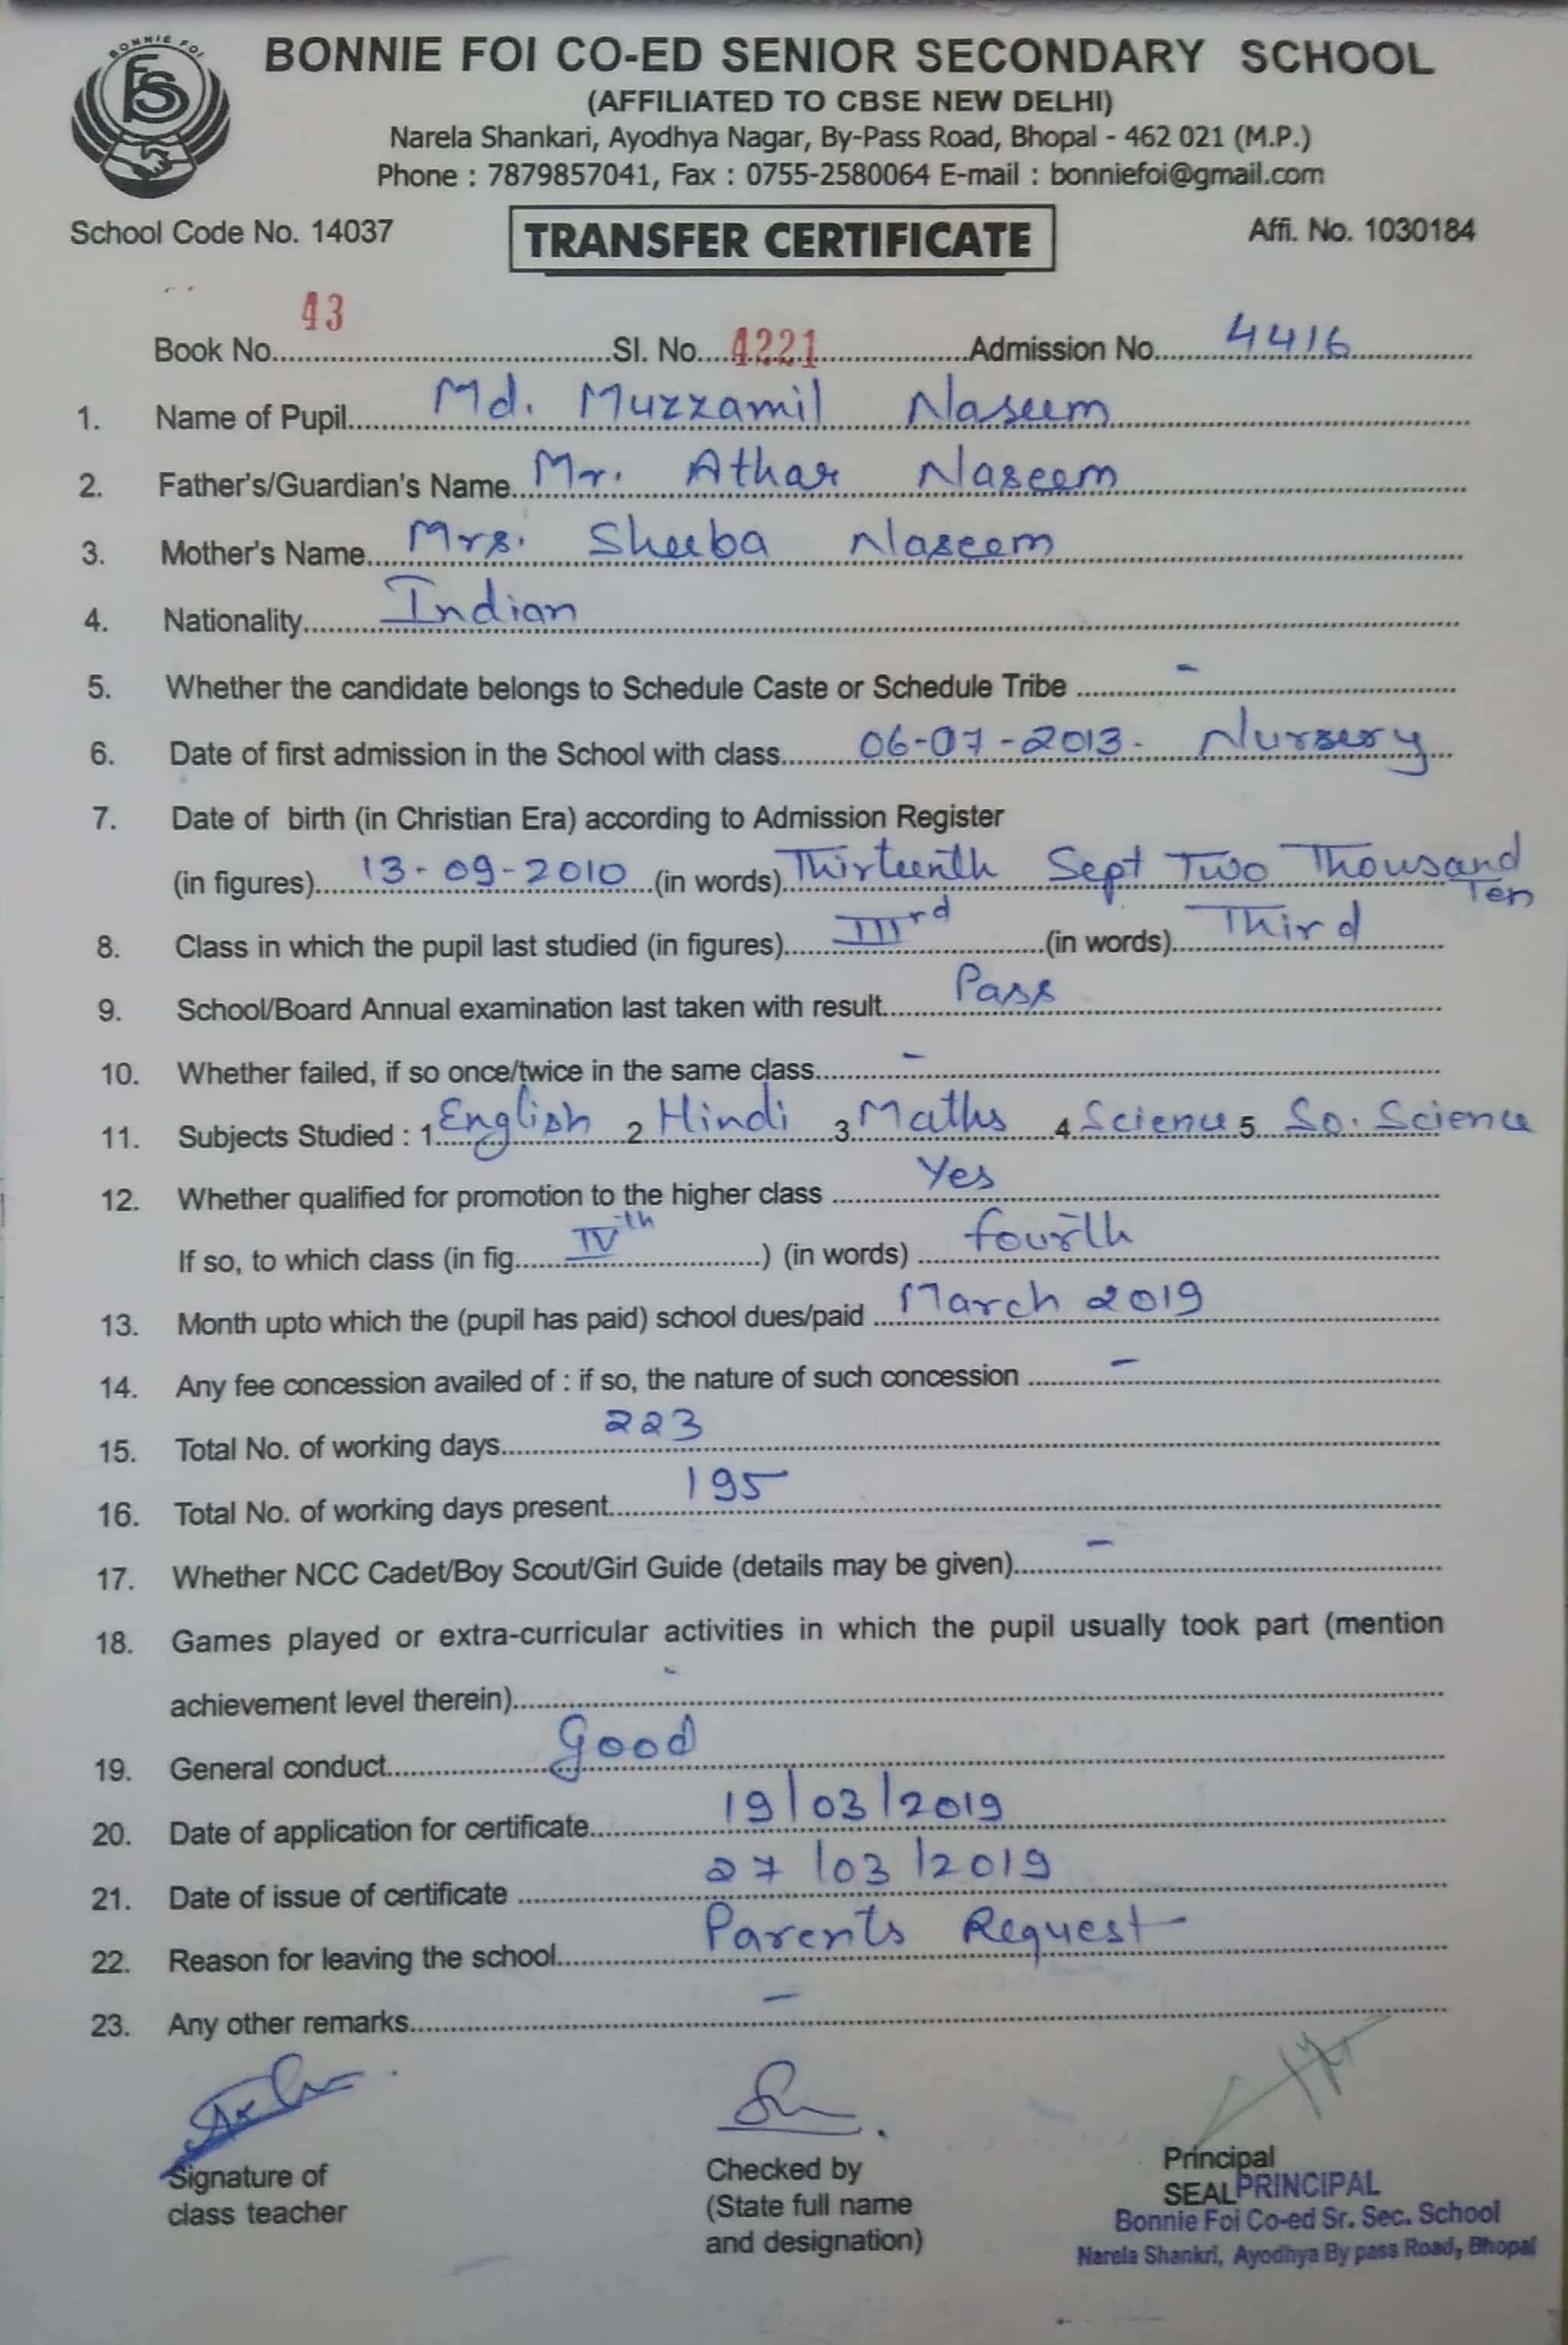 BONNIE FOI
FS
BONNIE FOI CO-ED SENIOR SECONDARY SCHOOL
(AFFILIATED TO CBSE NEW DELHI)
Narela Shankari, Ayodhya Nagar, By-Pass Road, Bhopal - 462 021 (M.P.)
Phone : 7879857041, Fax : 0755-2580064 E-mail : bonniefoi@gmail.com
School Code No. 14037 TRANSFER CERTIFICATE Affi. No. 1030184
Book No. 43 Sl. No. 4221 Admission No. 4416
1. Name of Pupil Md. Muzzamil Naseem
2. Father's/Guardian's Name Mr. Athar Naseem
3. Mother's Name Mrs. Sheeba Naseem
4. Nationality Indian
5. Whether the candidate belongs to Schedule Caste or Schedule Tribe -
6. Date of first admission in the School with class 06-07-2013. Nursery
7. Date of birth (in Christian Era) according to Admission Register
(in figures) 13-09-2010 (in words) Thirteenth Sept Two Thousand
Ten
8. Class in which the pupil last studied (in figures) IIIrd (in words) Third
9. School/Board Annual examination last taken with result Pass
10. Whether failed, if so once/twice in the same class -
11. Subjects Studied : 1 English 2 Hindi 3 Maths 4 Science 5 So. Science
12. Whether qualified for promotion to the higher class Yes
If so, to which class (in fig. IVth ) (in words) fourth
13. Month upto which the (pupil has paid) school dues/paid March 2019
14. Any fee concession availed of : if so, the nature of such concession -
15. Total No. of working days 223
16. Total No. of working days present 195
17. Whether NCC Cadet/Boy Scout/Girl Guide (details may be given) -
18. Games played or extra-curricular activities in which the pupil usually took part (mention
achievement level therein) -
19. General conduct good
20. Date of application for certificate 19/03/2019
21. Date of issue of certificate 27/03/2019
22. Reason for leaving the school Parents Request
23. Any other remarks -
Signature of
class teacher
Checked by
(State full name
and designation)
Principal
SEAL PRINCIPAL
Bonnie Foi Co-ed Sr. Sec. School
Narela Shankri, Ayodhya By pass Road, Bhopal